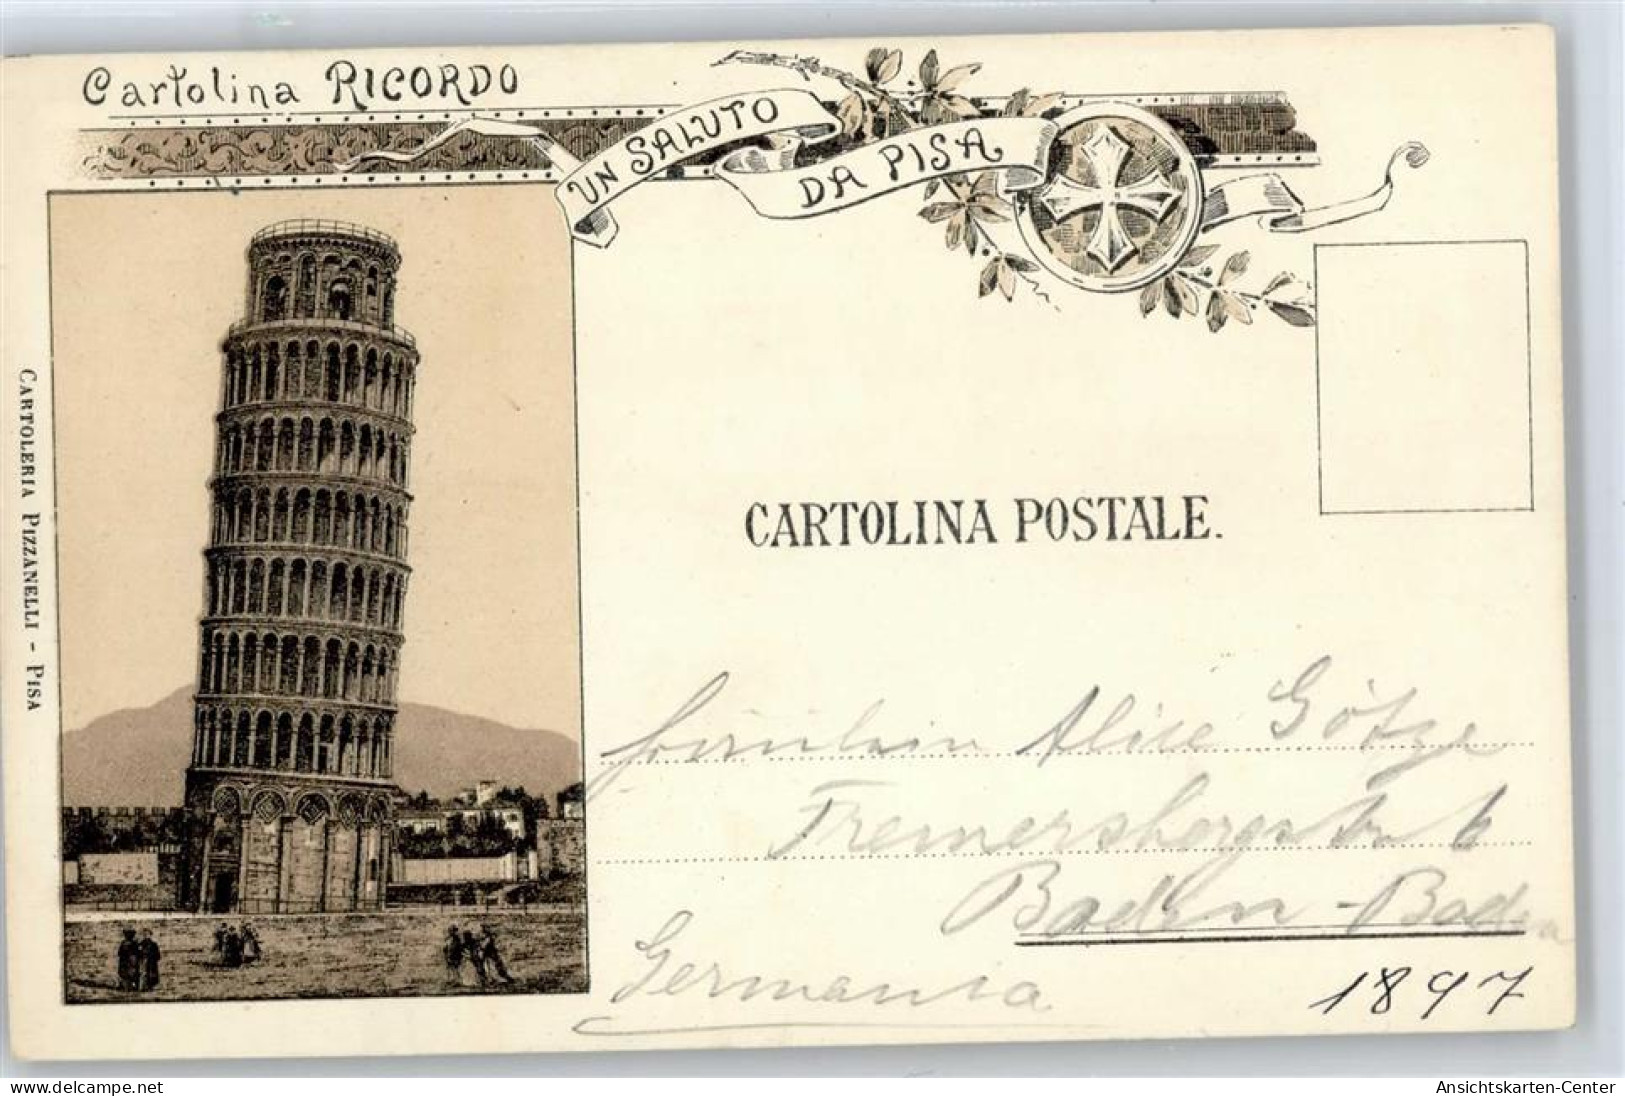 Cartolina RICORDO
UN SALUTO
DA PISA
CARTOLERIA PIZZANELLI - PISA
CARTOLINA POSTALE.
Fräulein Alice Götze
Fremersbergstr. 6
Baden-Baden
Germania
1897
www.delcampe.net
Ansichtskarten-Center